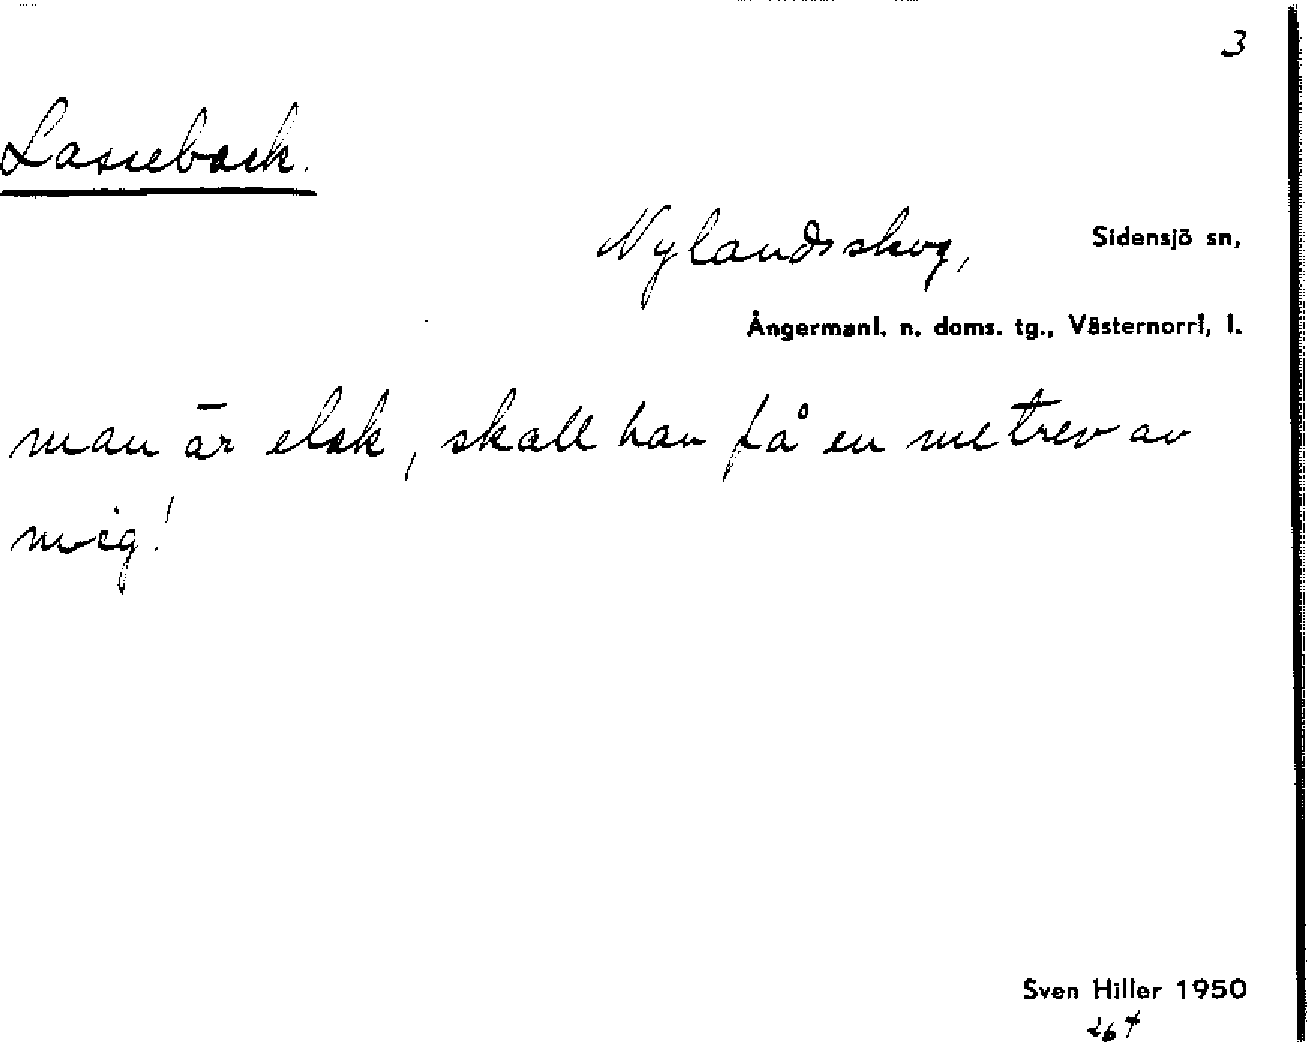 3
Lassebäck.
Nylandsskog, Sidensjö sn,
Ångermanl. n. doms. tg., Västernorrl. l.
man är elak, skall han få en metrev av
mig!
Sven Hiller 1950